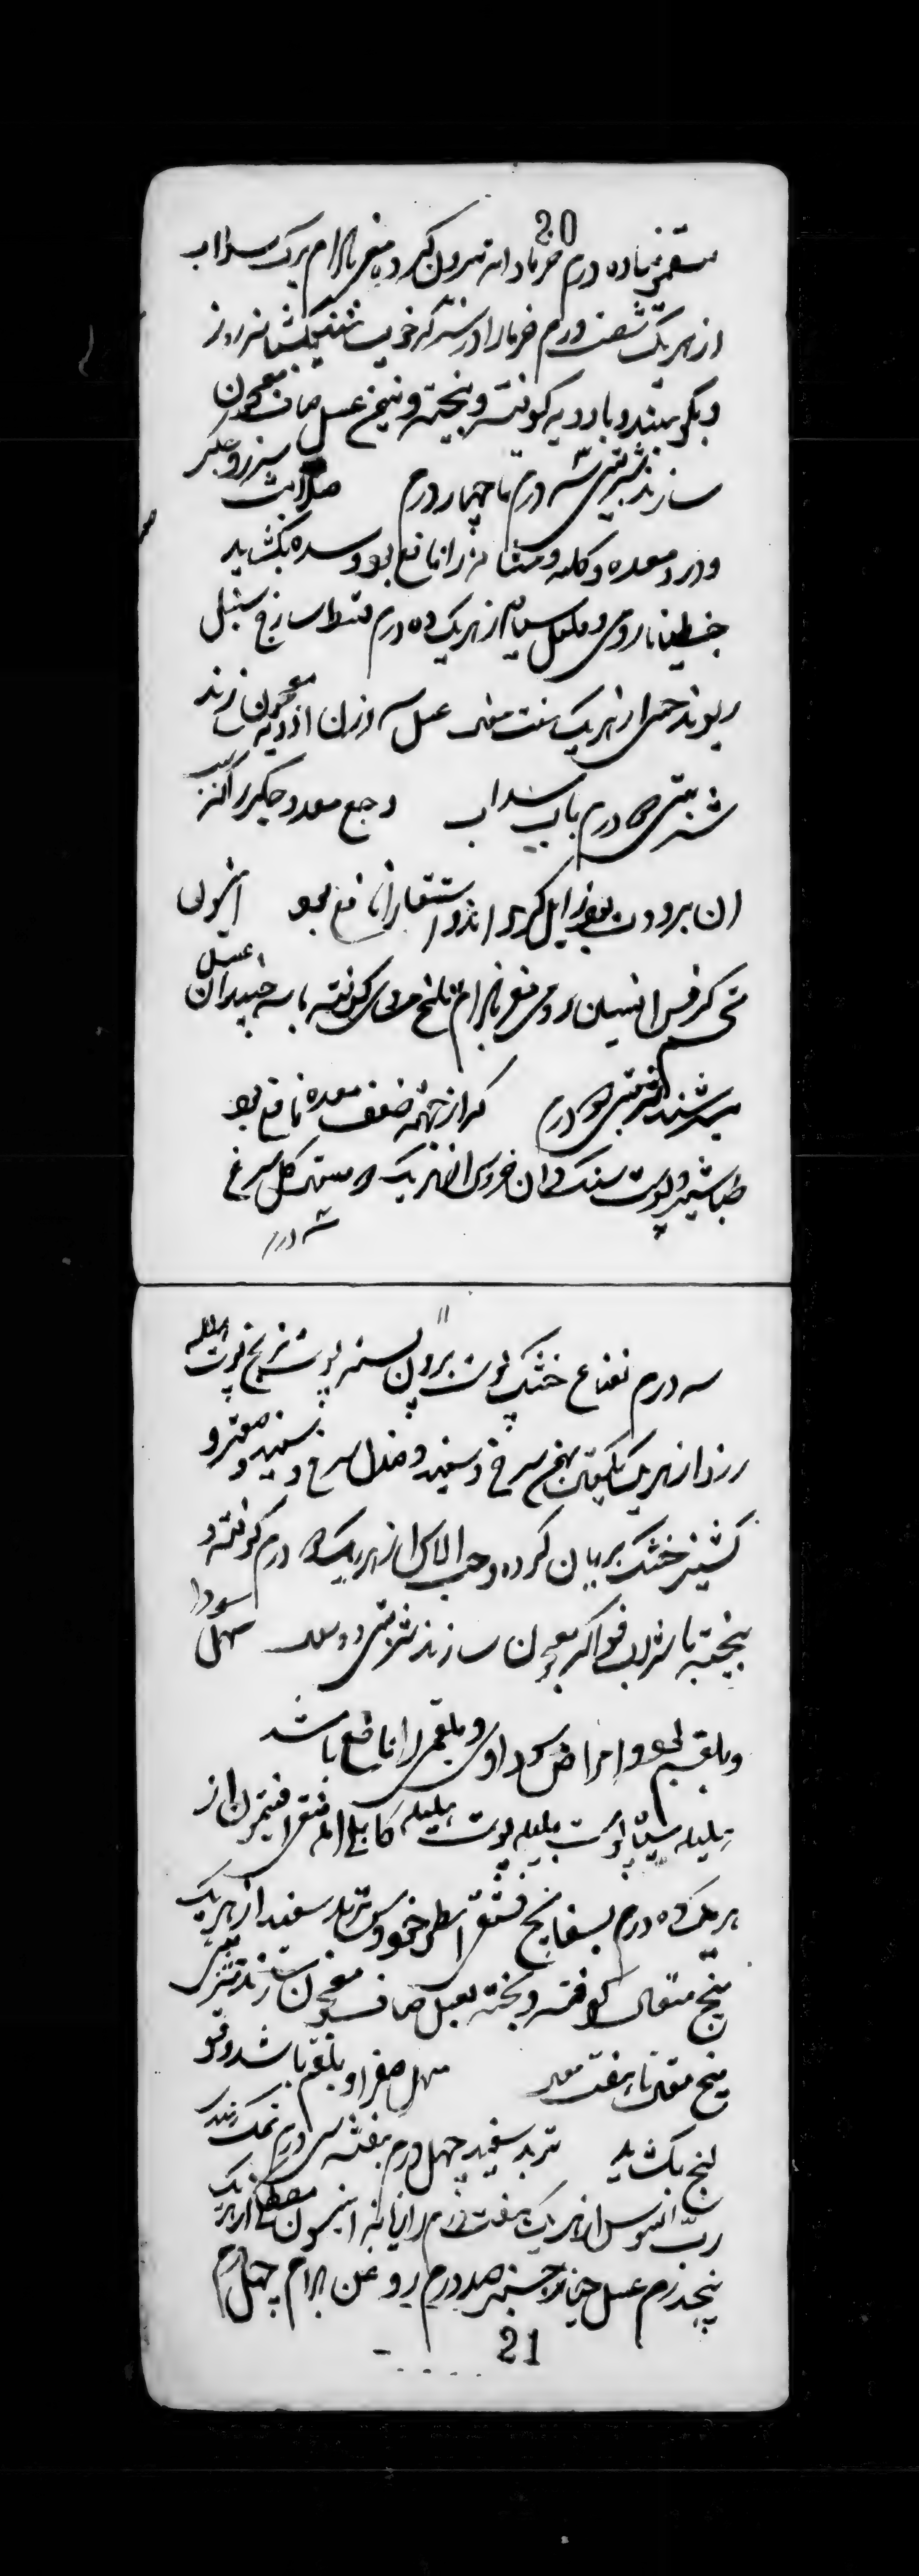 20
سقمونیا ده درم خرما دانه بیرون کرده مغز بادام برک سداب
از هر یک شصت درم خرما را در سرکه خویسانند یکشبانروز
و بکوبند و با ادویه کوفته و بیخته و نیمخ عسل صاف معجون
سازند شربتی سه درم تا چهار درم صلابت سپرز و جکر
و درد معده و کلیه و مثانه را نافع بود و سده بکشاید
جنطیانا رومی و فلفل سیاه از هر یک ده درم قسط ساذج سنبل
ریوند چینی از هر یک هفت عسل سه وزن ادویه معجون سازند
شربتی درم باب سداب وجع معده و جکر را که
از برودت بود زایل کرداند و استسقا را نافع بود انیسون
تخم کرفس افسنتین رومی مغز بادام تلخ کوفته با سه چندان عسل
بسرشند شربتی درم که از جهة ضعف معده نافع بود
طباشیر و پوست سنکدان خروس از هر یک کل سرخ
سه درم
سه درم نعناع خشک پوست برون پسته پوست ترنج پوست هلیله
زرد از هر یک بهمن سرخ و سفید و صندل سرخ و سفید و صعتر و
کشنیز خشک بریان کرده و حب الاس از هر یک درم کوفته و
بیخته با شراب فواکه معجون سازند شربتی دو مسهل سودا
و بلغم بود و امراض سوداوی و بلغمی را نافع باشد
هلیله سیاه پوست بلیله پوست هلیله کابلی آمله منقی افتیمون از
هر یک ده درم بسفایج فستقی اسطوخودوس تربد سفید از هر یک
پنج مثقال کوفته و بیخته بعسل صاف معجون سازند شربتی
پنج مثقال تا هفت مسهل صفرا و بلغم باشد و قو
لنج بکشاید تربد سفید چهل درم بنفشه سی درم نمک
رب السوس از هر یک هفت درم رازیانه انیسون مصطکی از هر یک
پنجدرم عسل خیار چنبر صد درم روغن بادام چهل درم
21